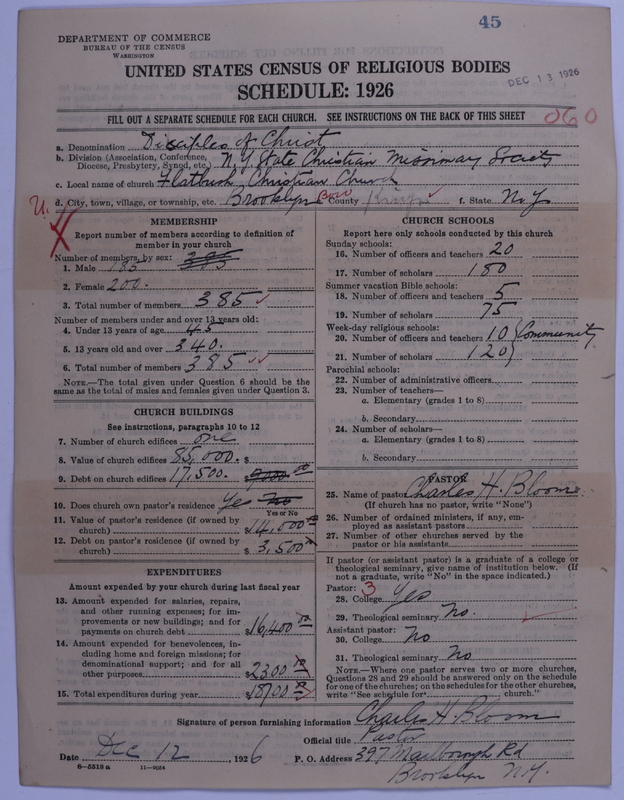 45
DEPARTMENT OF COMMERCE
BUREAU OF THE CENSUS
WASHINGTON
UNITED STATES CENSUS OF RELIGIOUS BODIES
DEC 13 1926
SCHEDULE: 1926
FILL OUT A SEPARATE SCHEDULE FOR EACH CHURCH. SEE INSTRUCTIONS ON THE BACK OF THIS SHEET
060
a. Denomination Disciples of Christ
b. Division (Association, Conference, Diocese, Presbytery, Synod, etc.) N.Y. State Christian Missionary Society
c. Local name of church Flatbush Christian Church
d. City, town, village, or township, etc. Brooklyn Boro County Kings f. State N.Y.
U.
MEMBERSHIP
Report number of members according to definition of
member in your church
Number of members, by sex: 385
1. Male 185
2. Female 200.
3. Total number of members 385
Number of members under and over 13 years old:
4. Under 13 years of age 45
5. 13 years old and over 340.
6. Total number of members 385
NOTE.—The total given under Question 6 should be the
same as the total of males and females given under Question 3.
CHURCH BUILDINGS
See instructions, paragraphs 10 to 12
7. Number of church edifices one
8. Value of church edifices 85,000. $
9. Debt on church edifices 17,500. $
10. Does church own pastor's residence Yes No
Yes or No
11. Value of pastor's residence (if owned by
church) $14,000 00
12. Debt on pastor's residence (if owned by
church) $3,500 00
EXPENDITURES
Amount expended by your church during last fiscal year
13. Amount expended for salaries, repairs,
and other running expenses; for im-
provements or new buildings; and for
payments on church debt $16,400 00
14. Amount expended for benevolences, in-
cluding home and foreign missions; for
denominational support; and for all
other purposes $2300 00
15. Total expenditures during year $18700 00
CHURCH SCHOOLS
Report here only schools conducted by this church
Sunday schools:
16. Number of officers and teachers 20
17. Number of scholars 180
Summer vacation Bible schools:
18. Number of officers and teachers 5
19. Number of scholars 75
Week-day religious schools:
20. Number of officers and teachers 10 Community
21. Number of scholars 120
Parochial schools:
22. Number of administrative officers
23. Number of teachers—
a. Elementary (grades 1 to 8)
b. Secondary
24. Number of scholars—
a. Elementary (grades 1 to 8)
b. Secondary
PASTOR
25. Name of pastor Charles H. Bloom
(If church has no pastor, write "None")
26. Number of ordained ministers, if any, em-
ployed as assistant pastors
27. Number of other churches served by the
pastor or his assistants
If pastor (or assistant pastor) is a graduate of a college or
theological seminary, give name of institution below. (If
not a graduate, write "No" in the space indicated.)
Pastor: 3
28. College Yes
29. Theological seminary No.
Assistant pastor:
30. College No
31. Theological seminary No
NOTE.—Where one pastor serves two or more churches,
Questions 28 and 29 should be answered only on the schedule
for one of the churches; on the schedules for the other churches,
write "See schedule for church."
Signature of person furnishing information Charles H. Bloom
Official title Pastor
Date Dec 12, 1926 P. O. Address 397 Marlborough Rd
Brooklyn N.Y.
8—5518 a 11—9024